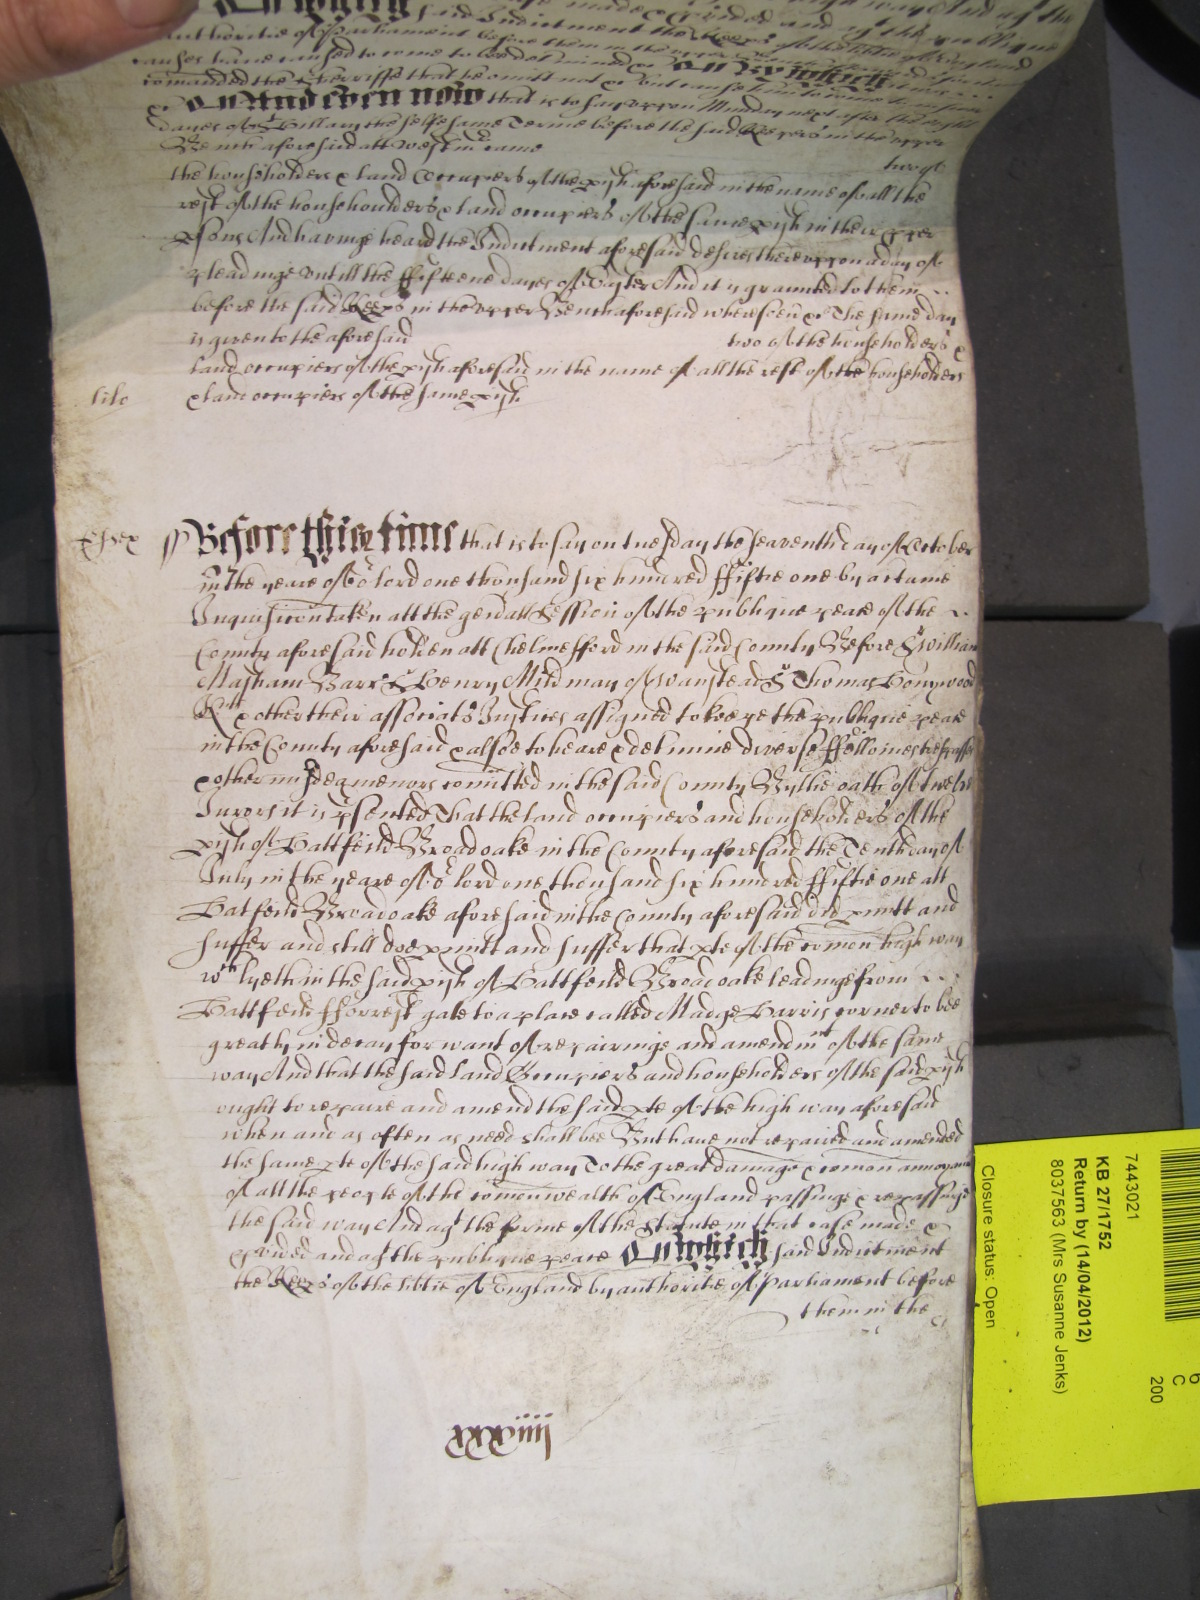 Authoritie of Parliament before them in the upper
causes have caused to come to bee determined &c On By which
comanded the Sherriffe that he omitt not &c but cause them to come to answere
&c On And even now that is to say uppon Munday next after the eight
dayes of St Hillary the selfe same Terme before the said Keepers in the upper
Bench aforesaid att Westmr came
two of
the householders & land Occupiers of the pish aforesaid in the name of all the
rest of the householders & land occupiers of the same pish in their pper
psons And having heard the Indictment aforesaid desires thereuppon a day of
pleadinge untill the ffifteene dayes of Easter And it is graunted to them
before the said Keeps in the upper Bench aforesaid wheresoevr &c The same day
is given to the aforesaid two of the householders &
land occupiers of the pish aforesaid in the name of all the rest of the householders
& land occupiers of the same pish
Essex ss Before this time that is to say on tuesday the seaventh day of October
in the yeare of or lord one thousand six hundred ffiftie one by a certaine
Inquisicon taken att the genall Session of the publique peace of the
County aforesaid holden att Chelmesfford in the said County Before Sr William
Masham Barrt Sr Henry Mildmay of Wanstead Sr Thomas Honywood
Kts & other their associats Justices assigned to keepe the publique peace
in the County aforesaid & alsoe to heare & detmine diverse ffellonies trespasses
& other misdeamenors comitted in the said County By the oath of twelve
Jurors it is psented That the land occupiers and householders of the
pish of Hattfeild Broadoake in the County aforesaid the Tenth day of
July in the yeare of or lord one thousand six hundred ffiftie one att
Hatfeild Broadoake aforesaid in the County aforesaid did pmitt and
suffer and still doe pmitt and suffer that pte of the comon high way
wch lyeth in the said pish of Hattfeild Broadoake leadinge from
Hattfeild fforrest gate to a place called Madge Harris corner to bee
greatly in decay for want of repairinge and amendmt of the same
way And that the said land Occupiers and householders of the said pish
ought to repaire and amend the said pte of the high way aforesaid
when and as often as need shall bee But have not repaired and amended
the same pte of the said high way To the great damage & comon annoyance
of all the people of the comonwealth of England passinge & repassinge
the said way And agt the forme of the Statute in that case made &
pvided and agt the publique peace On which said Indictment
the Keeps of the libtie of England by authoritie of Parliament before
them in the
7443021
KB 27/1752
Return by (14/04/2012)
8037563 (Mrs Susanne Jenks)
Closure status: Open
C
200